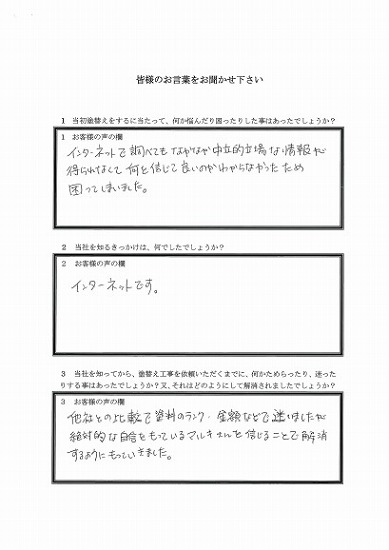 皆様のお言葉をお聞かせ下さい
1 当初塗替えをするに当たって、何か悩んだり困ったりした事はあったでしょうか?
1 お客様の声の欄
インターネットで調べてもなかなか中立的立場な情報が
得られなくて何を信じて良いのかわからなかったため
困ってしまいました。
2 当社を知るきっかけは、何でしたでしょうか?
2 お客様の声の欄
インターネットです。
3 当社を知ってから、塗替え工事を依頼いただくまでに、何かためらったり、迷った
りする事はあったでしょうか?又、それはどのようにして解消されましたでしょうか?
3 お客様の声の欄
他社との比較で塗料のランク、金額などで迷いましたが
絶対的な自信をもっているマルキさんを信じることで解消
するようにもっていきました。